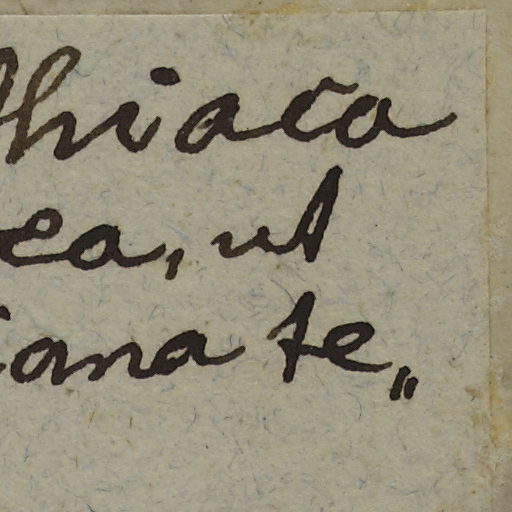 thiaca
ea, ut
iana te„